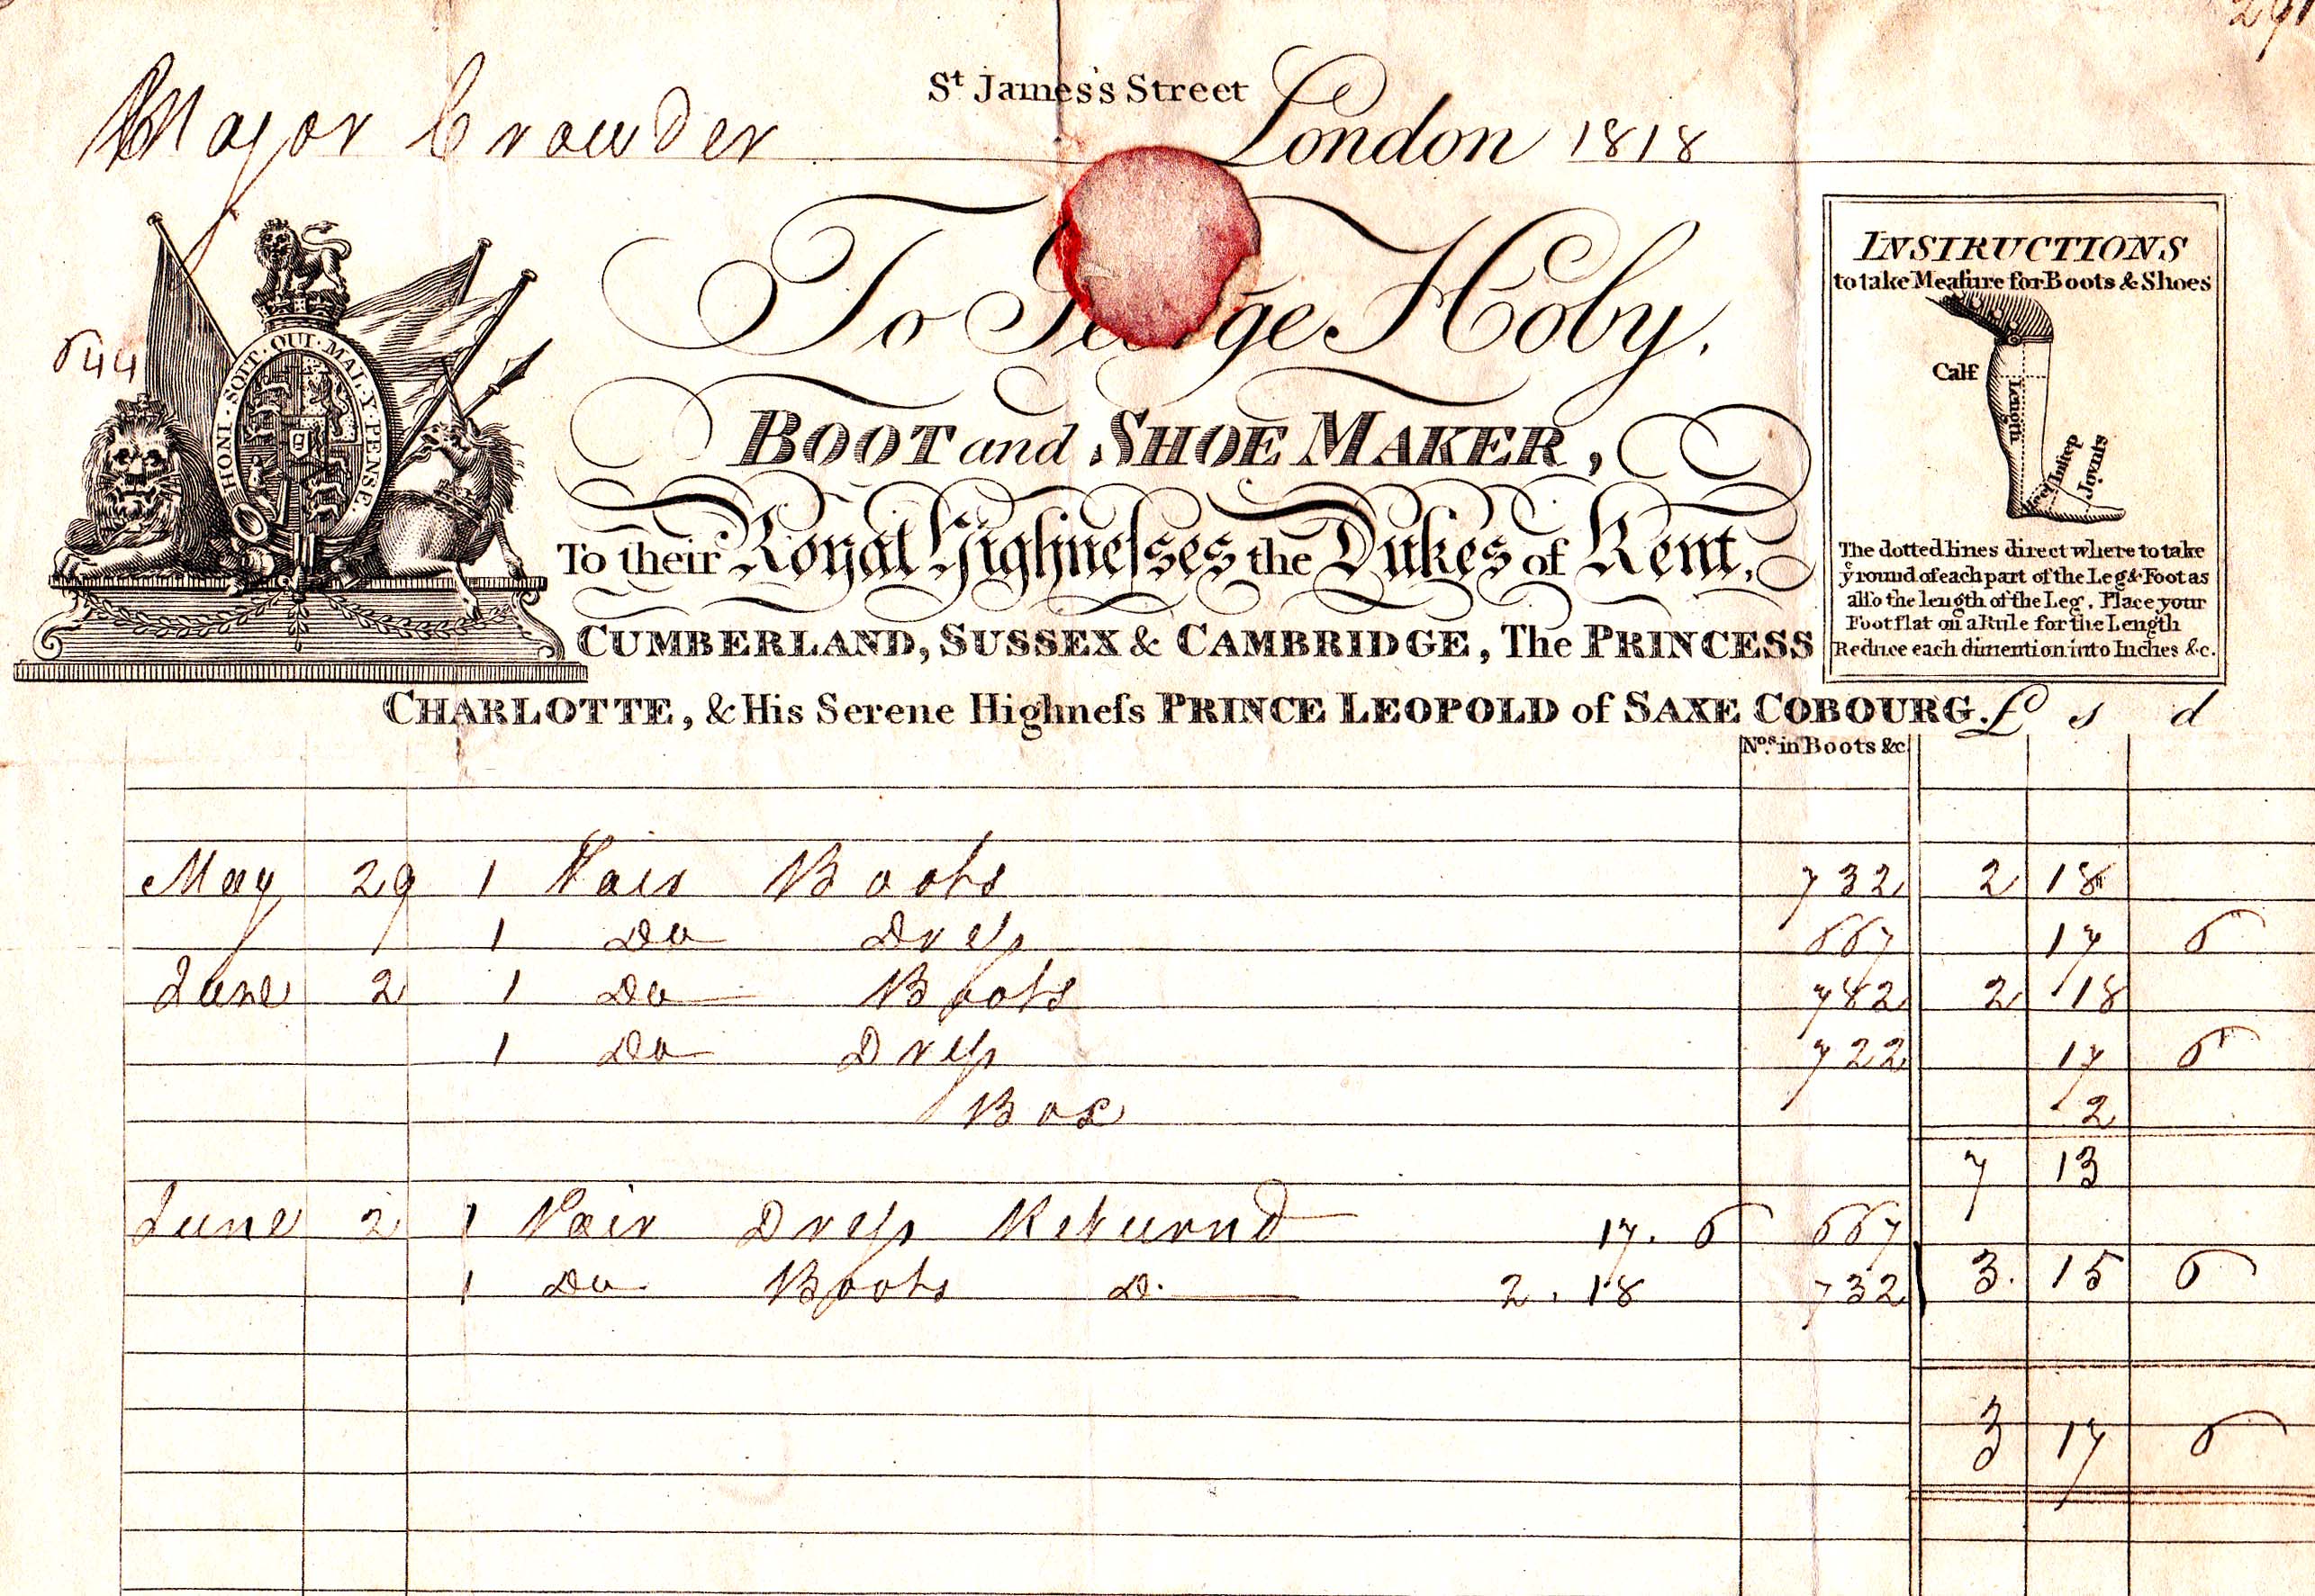 St James's Street
Major Crowder London 1818
644
HONI · SOIT · QUI · MAL · Y · PENSE
To George Hoby.
BOOT and SHOE MAKER,
To their Royal Highneſses the Dukes of Kent,
CUMBERLAND, SUSSEX & CAMBRIDGE, The PRINCESS
CHARLOTTE, & His Serene Highneſs PRINCE LEOPOLD of SAXE COBOURG.
INSTRUCTIONS
to take Meaſure for Boots & Shoes
Calf
Length
Heel
Instep
Joynts
The dotted lines direct where to take
ÿ round of each part of the Leg & Foot as
alſo the length of the Leg. Place your
Foot flat on a Rule for the Length
Reduce each dimention into Inches &c.
£ s d
Nos. in Boots &c
May 29 1 Pair Boots 732 2 18
1 Do Dreſs 667 17 6
June 2 1 Do Boots 782 2 18
1 Do Dreſs 722 17 6
Box 2
7 13
June 2 1 Pair Dreſs Returnd 17. 6 667
1 Do Boots D. 2. 18 732 3. 15 6
3 17 6